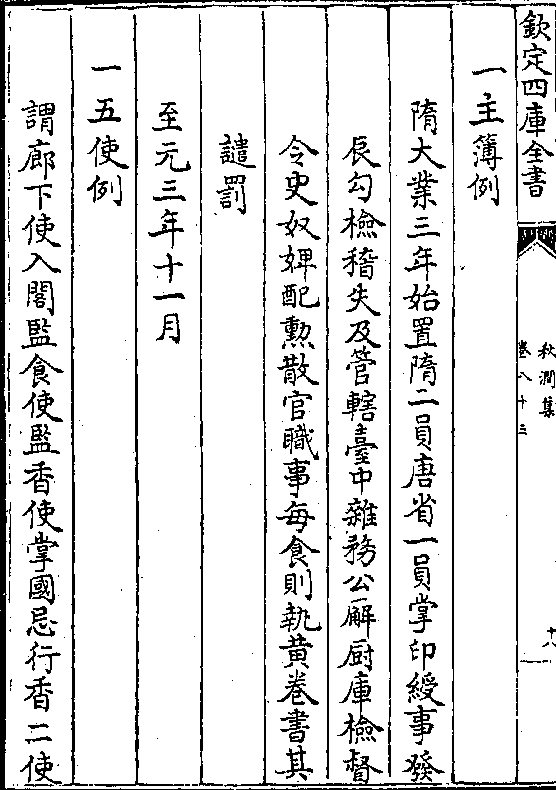 欽定四庫全書
秋澗集
卷八十三
十八
一主簿例
隋大業三年始置隋二員唐省一員掌印綬事發
辰勾檢稽失及管轄臺中雜務公廨厨庫檢督
令史奴婢配勲散官職事每食則執黄卷書其
譴罰
至元三年十一月
一五使例
謂廊下使入閣監食使監香使掌國忌行香二使